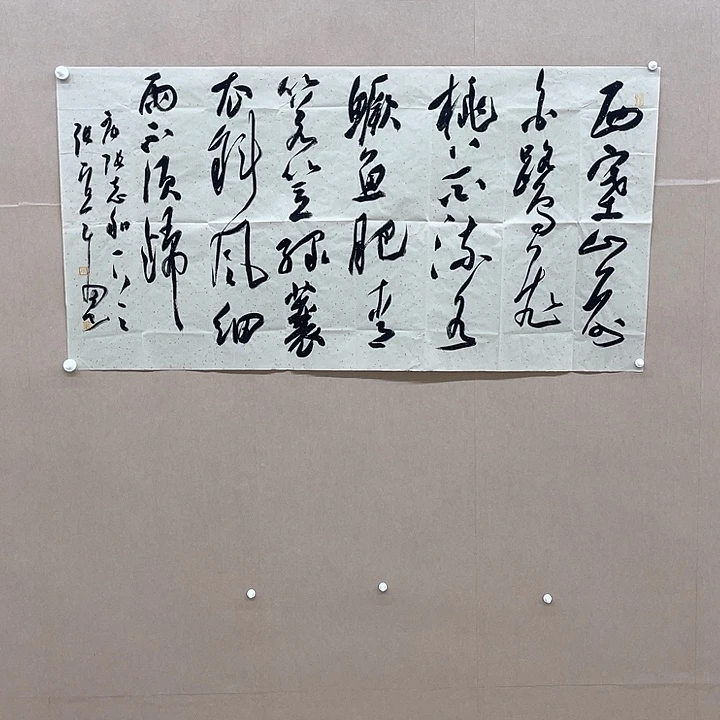 西塞山前
白鹭飞
桃花流水
鳜鱼肥青
箬笠绿蓑
衣斜风细
雨不须归
张志和